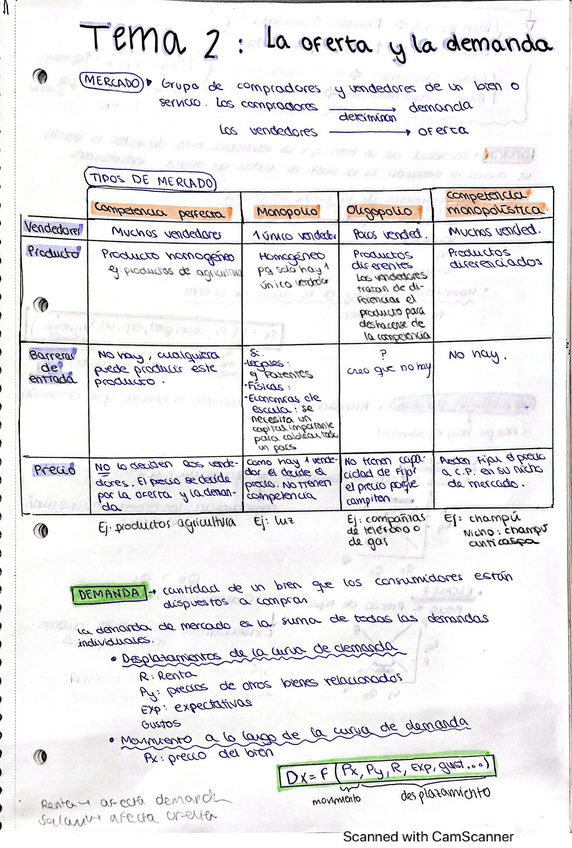 Tema 2 : La oferta y la demanda
MERCADO Grupo de compradores y vendedores de un bien o
servicio. Los compradores → demanda
determinan
Los vendedores → oferta
TIPOS DE MERCADO
Competencia perfecta Monopolio Oligopolio Competencia monopolística
Vendedores Muchos vendedores 1 único vended. Pocos vended. Muchos vended.
Producto
Producto homogéneo
ej. productos de agricultura
Homogéneo
pq solo hay 1
único vendedor
Productos
diferentes
Los vendedores
tratan de di-
ferenciar el
producto para
deshacerse de
la competencia
Productos
diferenciados
Barreras
de
entrada
No hay, cualquiera
puede producir este
producto.
Sí:
-Legales:
ej Patentes
-Físicas:
-Economías de
escala: se
necesita un
capital importante
para
un país
?
creo que no hay
No hay.
Precio
NO lo deciden los vende-
dores. El precio se decide
por la oferta y la deman-
da
Como hay 1 vende-
dor él decide el
precio. No tienen
competencia
No tienen capa-
cidad de fijar
el precio porque
compiten
Pueden fijar el precio
a C.P. en su nicho
de mercado.
Ej: productos agricultura
Ej: luz
Ej: compañías
de teléfono o
de gas
Ej: champú
Nicho: champú
anticaspa
DEMANDA → cantidad de un bien que los consumidores están
dispuestos a comprar
La demanda de mercado es la suma de todas las demandas
individuales.
• Desplazamientos de la curva de demanda
R: Renta
Py: precios de otros bienes relacionados
Exp: expectativas
Gustos
• Movimiento a lo largo de la curva de demanda
Px: precio del bien
Dx = F (Px, Py, R, Exp, gust...)
movimiento desplazamiento
Renta → afecta demanda
Salario → afecta oferta
Scanned with CamScanner